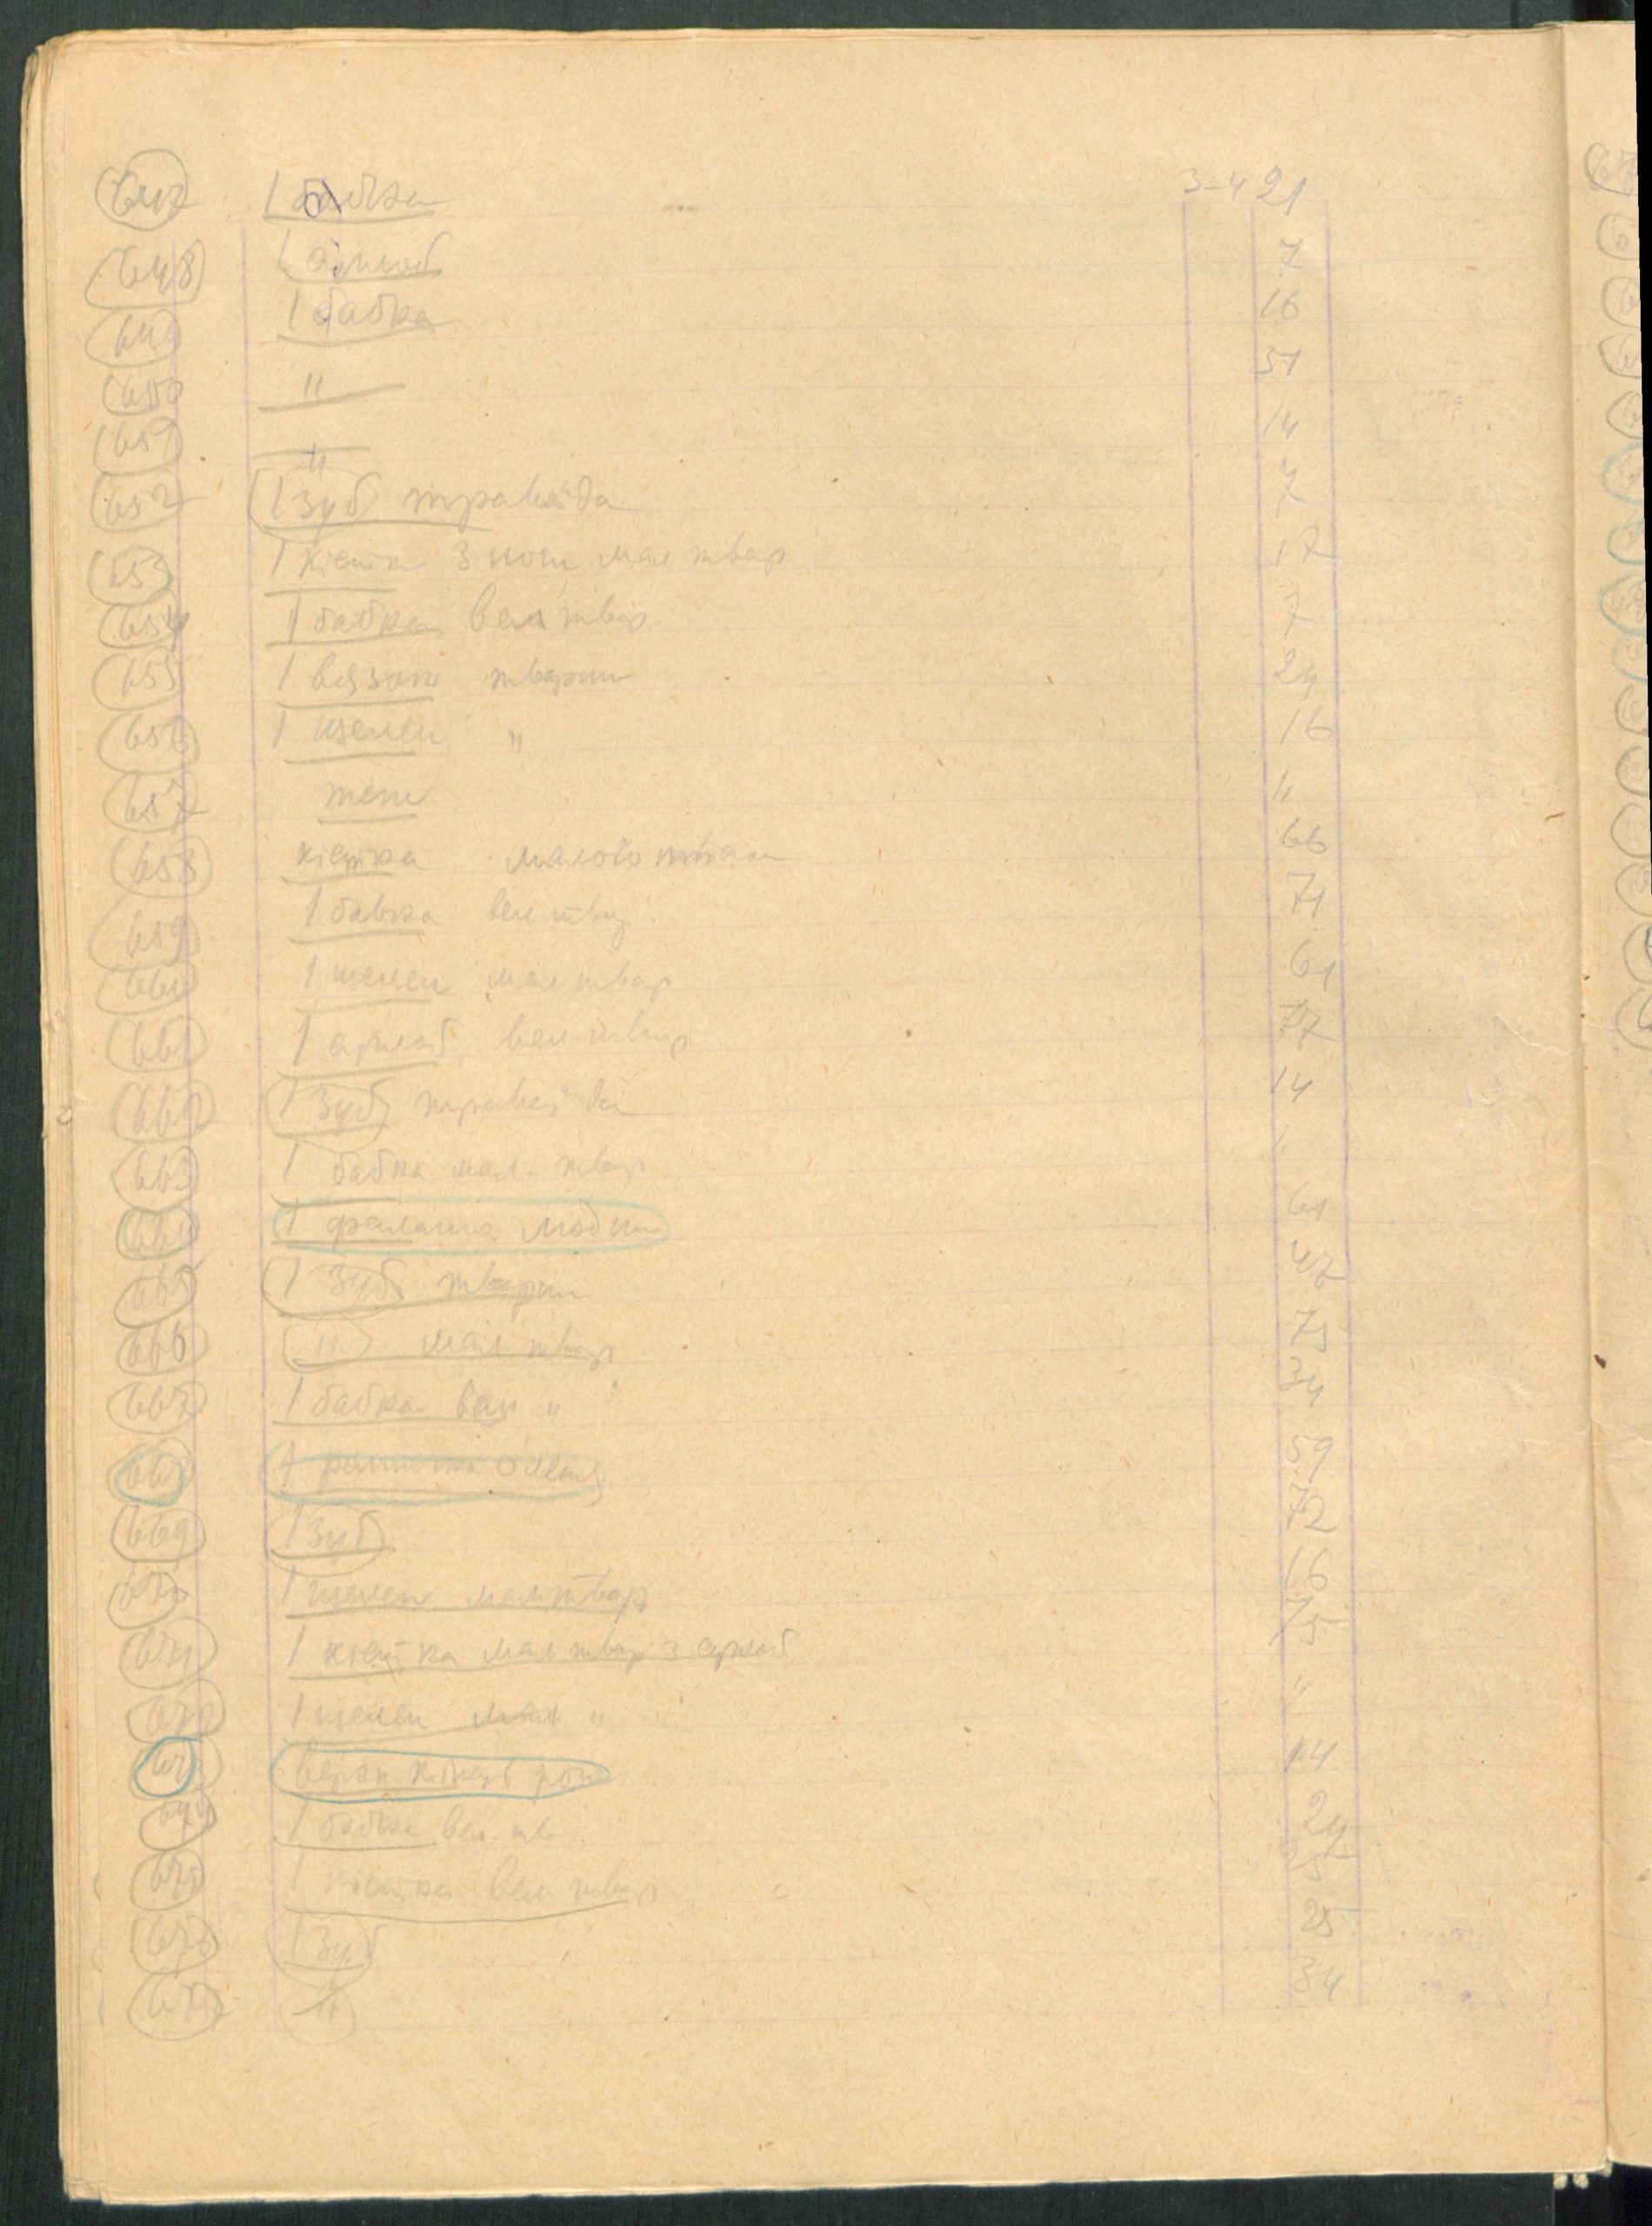 647 1 бабка 3-4 21
648 1 суглоб 7
649 1 бабка 16
650 " 51
651 " 14
652 1 зуб травоїда 7
653 1 кістка з ноги мал твар 17
654 1 бабка вел твар 7
655 1 вязок тварин 24
656 1 щелеп " 16
657 теж "
658 кістка малого птаха 66
659 1 бабка вел твар 71
660 1 щелеп мал твар 61
661 1 суглоб вел твар 77
662 1 зуб травоїда 14
663 1 бабка мал. твар "
664 1 фаланга людини 61
665 1 зуб тварин 47
666 " мал. твар 75
667 1 бабка вел " 34
668 1 59
669 1 зуб 72
670 1 щелеп мал твар 16
671 1 кістка мал твар з суглоб 75
672 1 щелеп мал "  "
673 верхн. кінець рога 14
674 1 бабка вел. тв 24
675 1 кістка вел твар 5
676 1 зуб 25
677 " 34